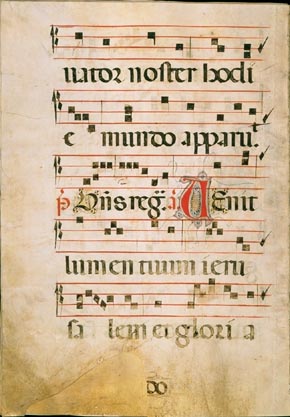 uator noster hodi
e mundo apparu.
p̃ Dñs reg̃. a UEnit
lumen tuum ieru
sa lem et glori a